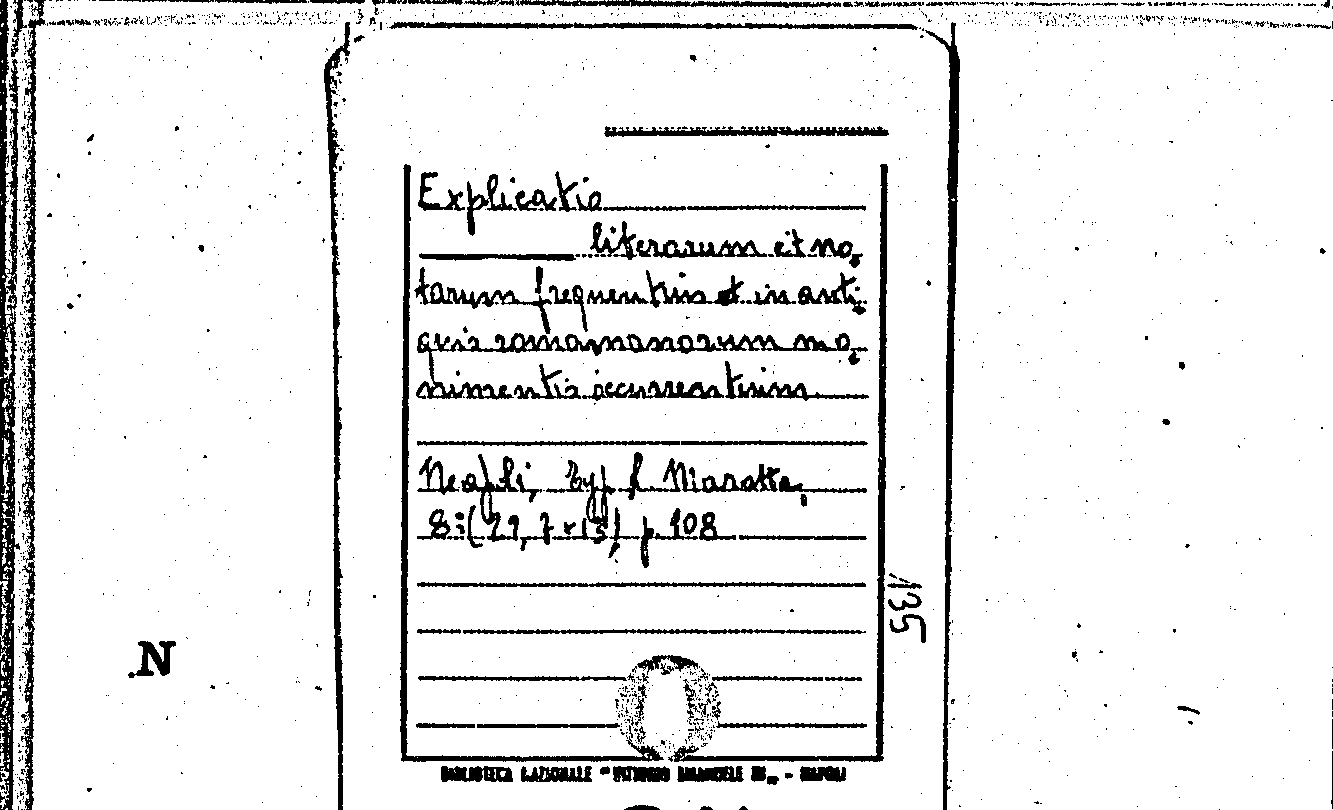 Explicatio
literarum et no,
tarum frequentius et in anti,
quis romanonorum mo,
nimentis occurrentium.
Neapoli, typ. f. Marotta,
8:(21,7x13), p. 108
135
N
BIBLIOTECA NAZIONALE "VITTORIO EMANUELE III" - NAPOLI